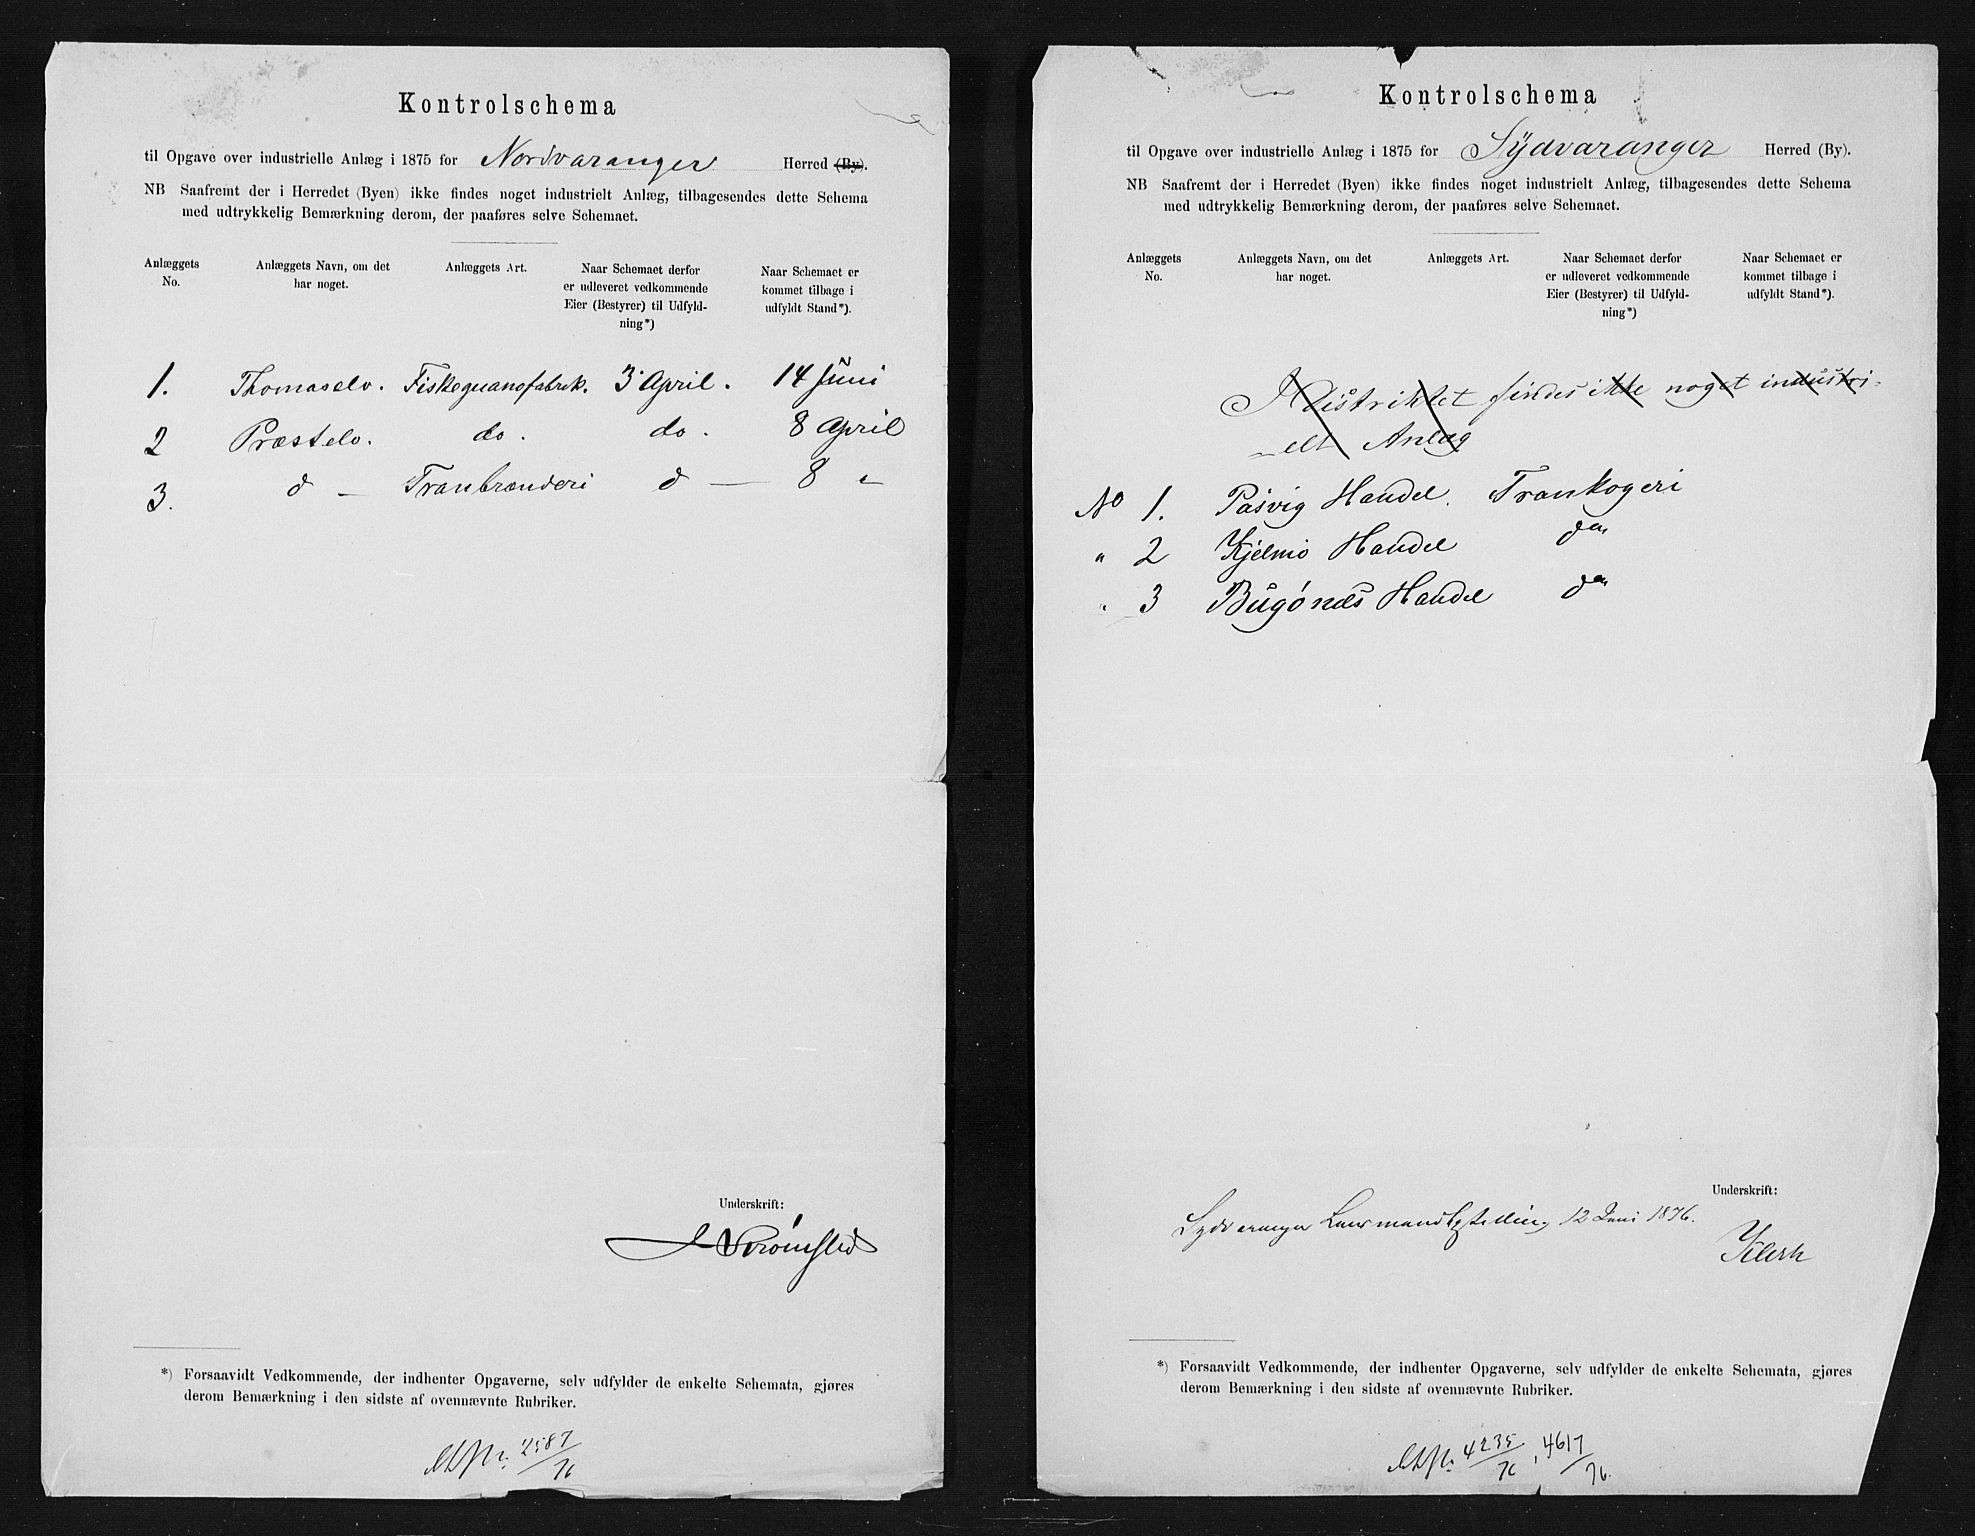 Kontrolschema
til Opgave over industrielle Anlæg i 1875 for Nordvaranger Herred (By).
NB Saafremt der i Herredet (Byen) ikke findes noget industrielt Anlæg, tilbagesendes dette Schema
med udtrykkelig Bemærkning derom, der paaføres selve Schemaet.
Anlæggets No. Anlæggets Navn, om det har noget. Anlæggets Art. Naar Schemaet derfor er udleveret vedkommende Eier (Bestyrer) til Udfyldning*) Naar Schemaet er kommet tilbage i udfyldt Stand*).
1. Thomaselv. Fiskeguanofabrik. 3 April. 14 Juni
2 Præstelv. do. do. 8 April
3. d — Tranbrænderi d — 8 "
Underskrift:
*) Forsaavidt Vedkommende, der indhenter Opgaverne, selv udfylder de enkelte Schemata, gjøres
derom Bemærkning i den sidste af ovennævnte Rubriker.
2587/76
Kontrolschema
til Opgave over industrielle Anlæg i 1875 for Sydvaranger Herred (By).
NB Saafremt der i Herredet (Byen) ikke findes noget industrielt Anlæg, tilbagesendes dette Schema
med udtrykkelig Bemærkning derom, der paaføres selve Schemaet.
Anlæggets No. Anlæggets Navn, om det har noget. Anlæggets Art. Naar Schemaet derfor er udleveret vedkommende Eier (Bestyrer) til Udfyldning*) Naar Schemaet er kommet tilbage i udfyldt Stand*).
I Distriktet findes ikke noget industri-
elt Anlæg
No 1. Pasvig Handel. Trankogeri
" 2 Kjelmø Handel do
" 3 Bugønæs Handel do
Underskrift:
Sydvaranger Lensmandsbestilling 12 Juni 1876.
Klerk
*) Forsaavidt Vedkommende, der indhenter Opgaverne, selv udfylder de enkelte Schemata, gjøres
derom Bemærkning i den sidste af ovennævnte Rubriker.
4235/76, 4617/76.